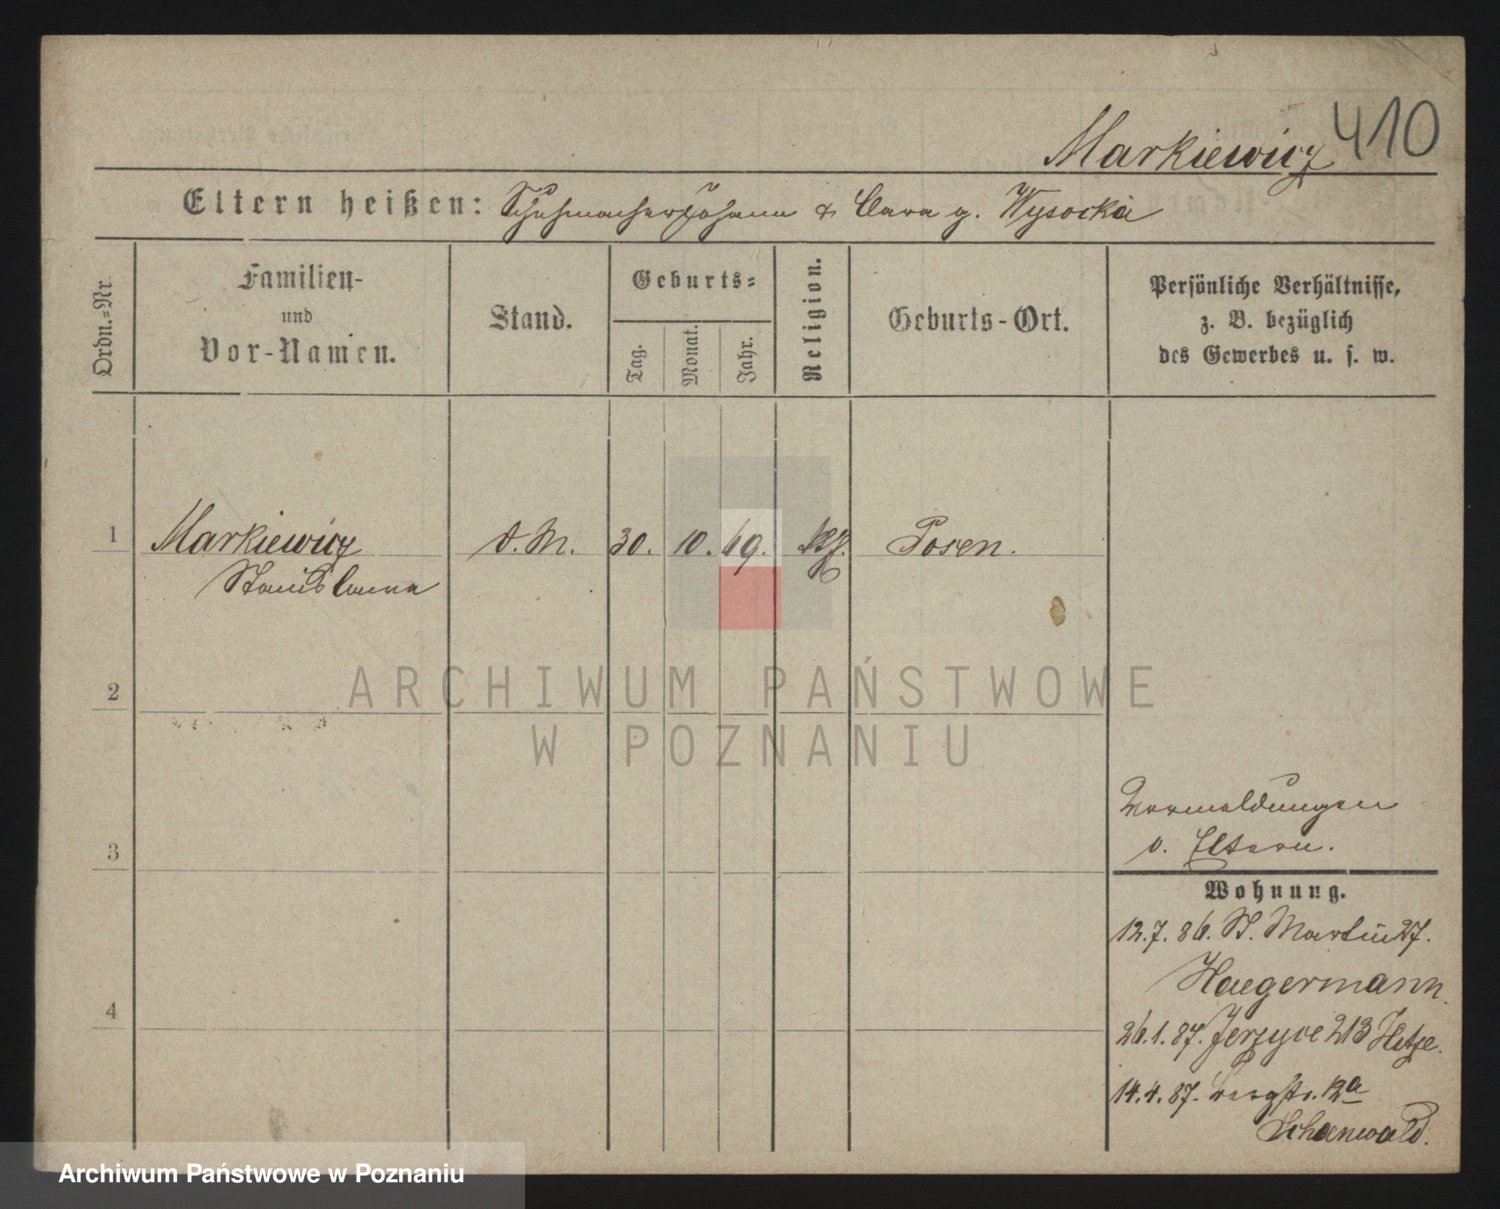 410
Markiewicz
Eltern heißen: Schuhmacher Johann & Clara g. Wysocka
Ordn.-Nr.
Familien-
und
Vor-Namen.
Stand.
Geburts-
Tag.
Monat.
Jahr.
Religion.
Geburts-Ort.
Persönliche Verhältnisse,
z. B. bezüglich
des Gewerbes u. s. w.
1 Markiewicz D. M. 30. 10. 69. Posen.
Stanislawa
2
3
4
Vormeldungen
v. Eltern.
Wohnung.
12.7.86. St. Martin 27.
Haegermann.
26.1.87. Jerzyce 213
14.4.87. Bergstr. 12a
Schoenwald.
ARCHIWUM PAŃSTWOWE
W POZNANIU
Archiwum Państwowe w Poznaniu